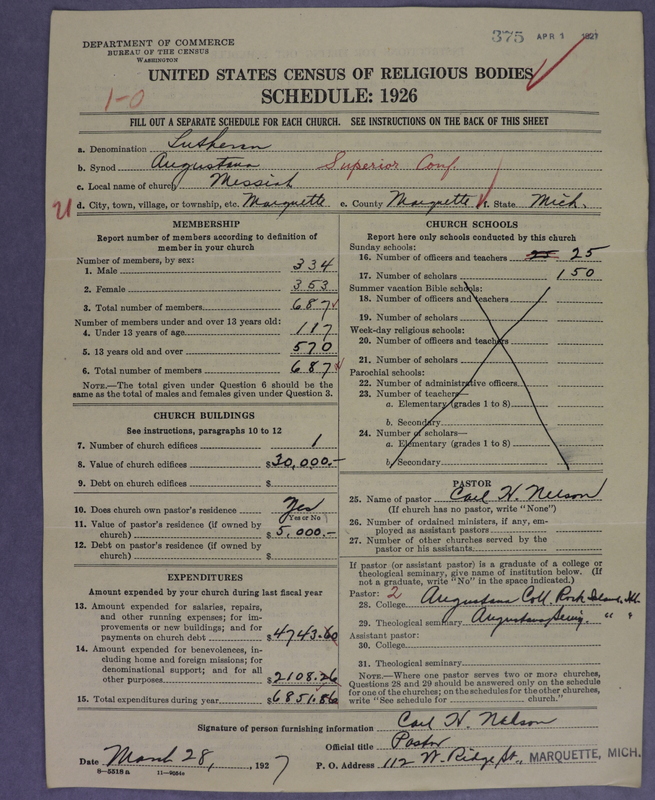 375 APR 1 1927
DEPARTMENT OF COMMERCE
BUREAU OF THE CENSUS
WASHINGTON
UNITED STATES CENSUS OF RELIGIOUS BODIES
SCHEDULE: 1926
1-0
FILL OUT A SEPARATE SCHEDULE FOR EACH CHURCH. SEE INSTRUCTIONS ON THE BACK OF THIS SHEET
a. Denomination Lutheran
b. Synod Augustana Superior Conf.
c. Local name of church Messiah
d. City, town, village, or township, etc. Marquette e. County Marquette f. State Mich.
MEMBERSHIP
Report number of members according to definition of
member in your church
Number of members, by sex:
1. Male 334
2. Female 353
3. Total number of members 687
Number of members under and over 13 years old:
4. Under 13 years of age 117
5. 13 years old and over 570
6. Total number of members 687
NOTE.—The total given under Question 6 should be the
same as the total of males and females given under Question 3.
CHURCH BUILDINGS
See instructions, paragraphs 10 to 12
7. Number of church edifices 1
8. Value of church edifices $30,000.-
9. Debt on church edifices $
10. Does church own pastor's residence? Yes
(Yes or No)
11. Value of pastor's residence (if owned by
church) $5,000.-
12. Debt on pastor's residence (if owned by
church) $
EXPENDITURES
Amount expended by your church during last fiscal year
13. Amount expended for salaries, repairs,
and other running expenses; for im-
provements or new buildings; and for
payments on church debt $4743.60
14. Amount expended for benevolences, in-
cluding home and foreign missions; for
denominational support; and for all
other purposes $2108.26
15. Total expenditures during year $6851.86
CHURCH SCHOOLS
Report here only schools conducted by this church
Sunday schools:
16. Number of officers and teachers 25 25
17. Number of scholars 150
Summer vacation Bible schools:
18. Number of officers and teachers
19. Number of scholars
Week-day religious schools:
20. Number of officers and teachers
21. Number of scholars
Parochial schools:
22. Number of administrative officers
23. Number of teachers—
a. Elementary (grades 1 to 8)
b. Secondary
24. Number of scholars—
a. Elementary (grades 1 to 8)
b. Secondary
PASTOR
25. Name of pastor Carl H. Nelson
(If church has no pastor, write "None")
26. Number of ordained ministers, if any, em-
ployed as assistant pastors
27. Number of other churches served by the
pastor or his assistants
If pastor (or assistant pastor) is a graduate of a college or
theological seminary, give name of institution below. (If
not a graduate, write "No" in the space indicated.)
Pastor: 2
28. College Augustana Coll. Rock Island, Ill.
29. Theological seminary Augustana " "
Assistant pastor:
30. College
31. Theological seminary
NOTE.—Where one pastor serves two or more churches,
Questions 28 and 29 should be answered only on the schedule
for one of the churches; on the schedules for the other churches,
write "See schedule for church."
Signature of person furnishing information Carl H. Nelson
Official title Pastor
Date March 28, 1927 P. O. Address 112 W. Ridge St., MARQUETTE, MICH.
8—5518a 11—9054